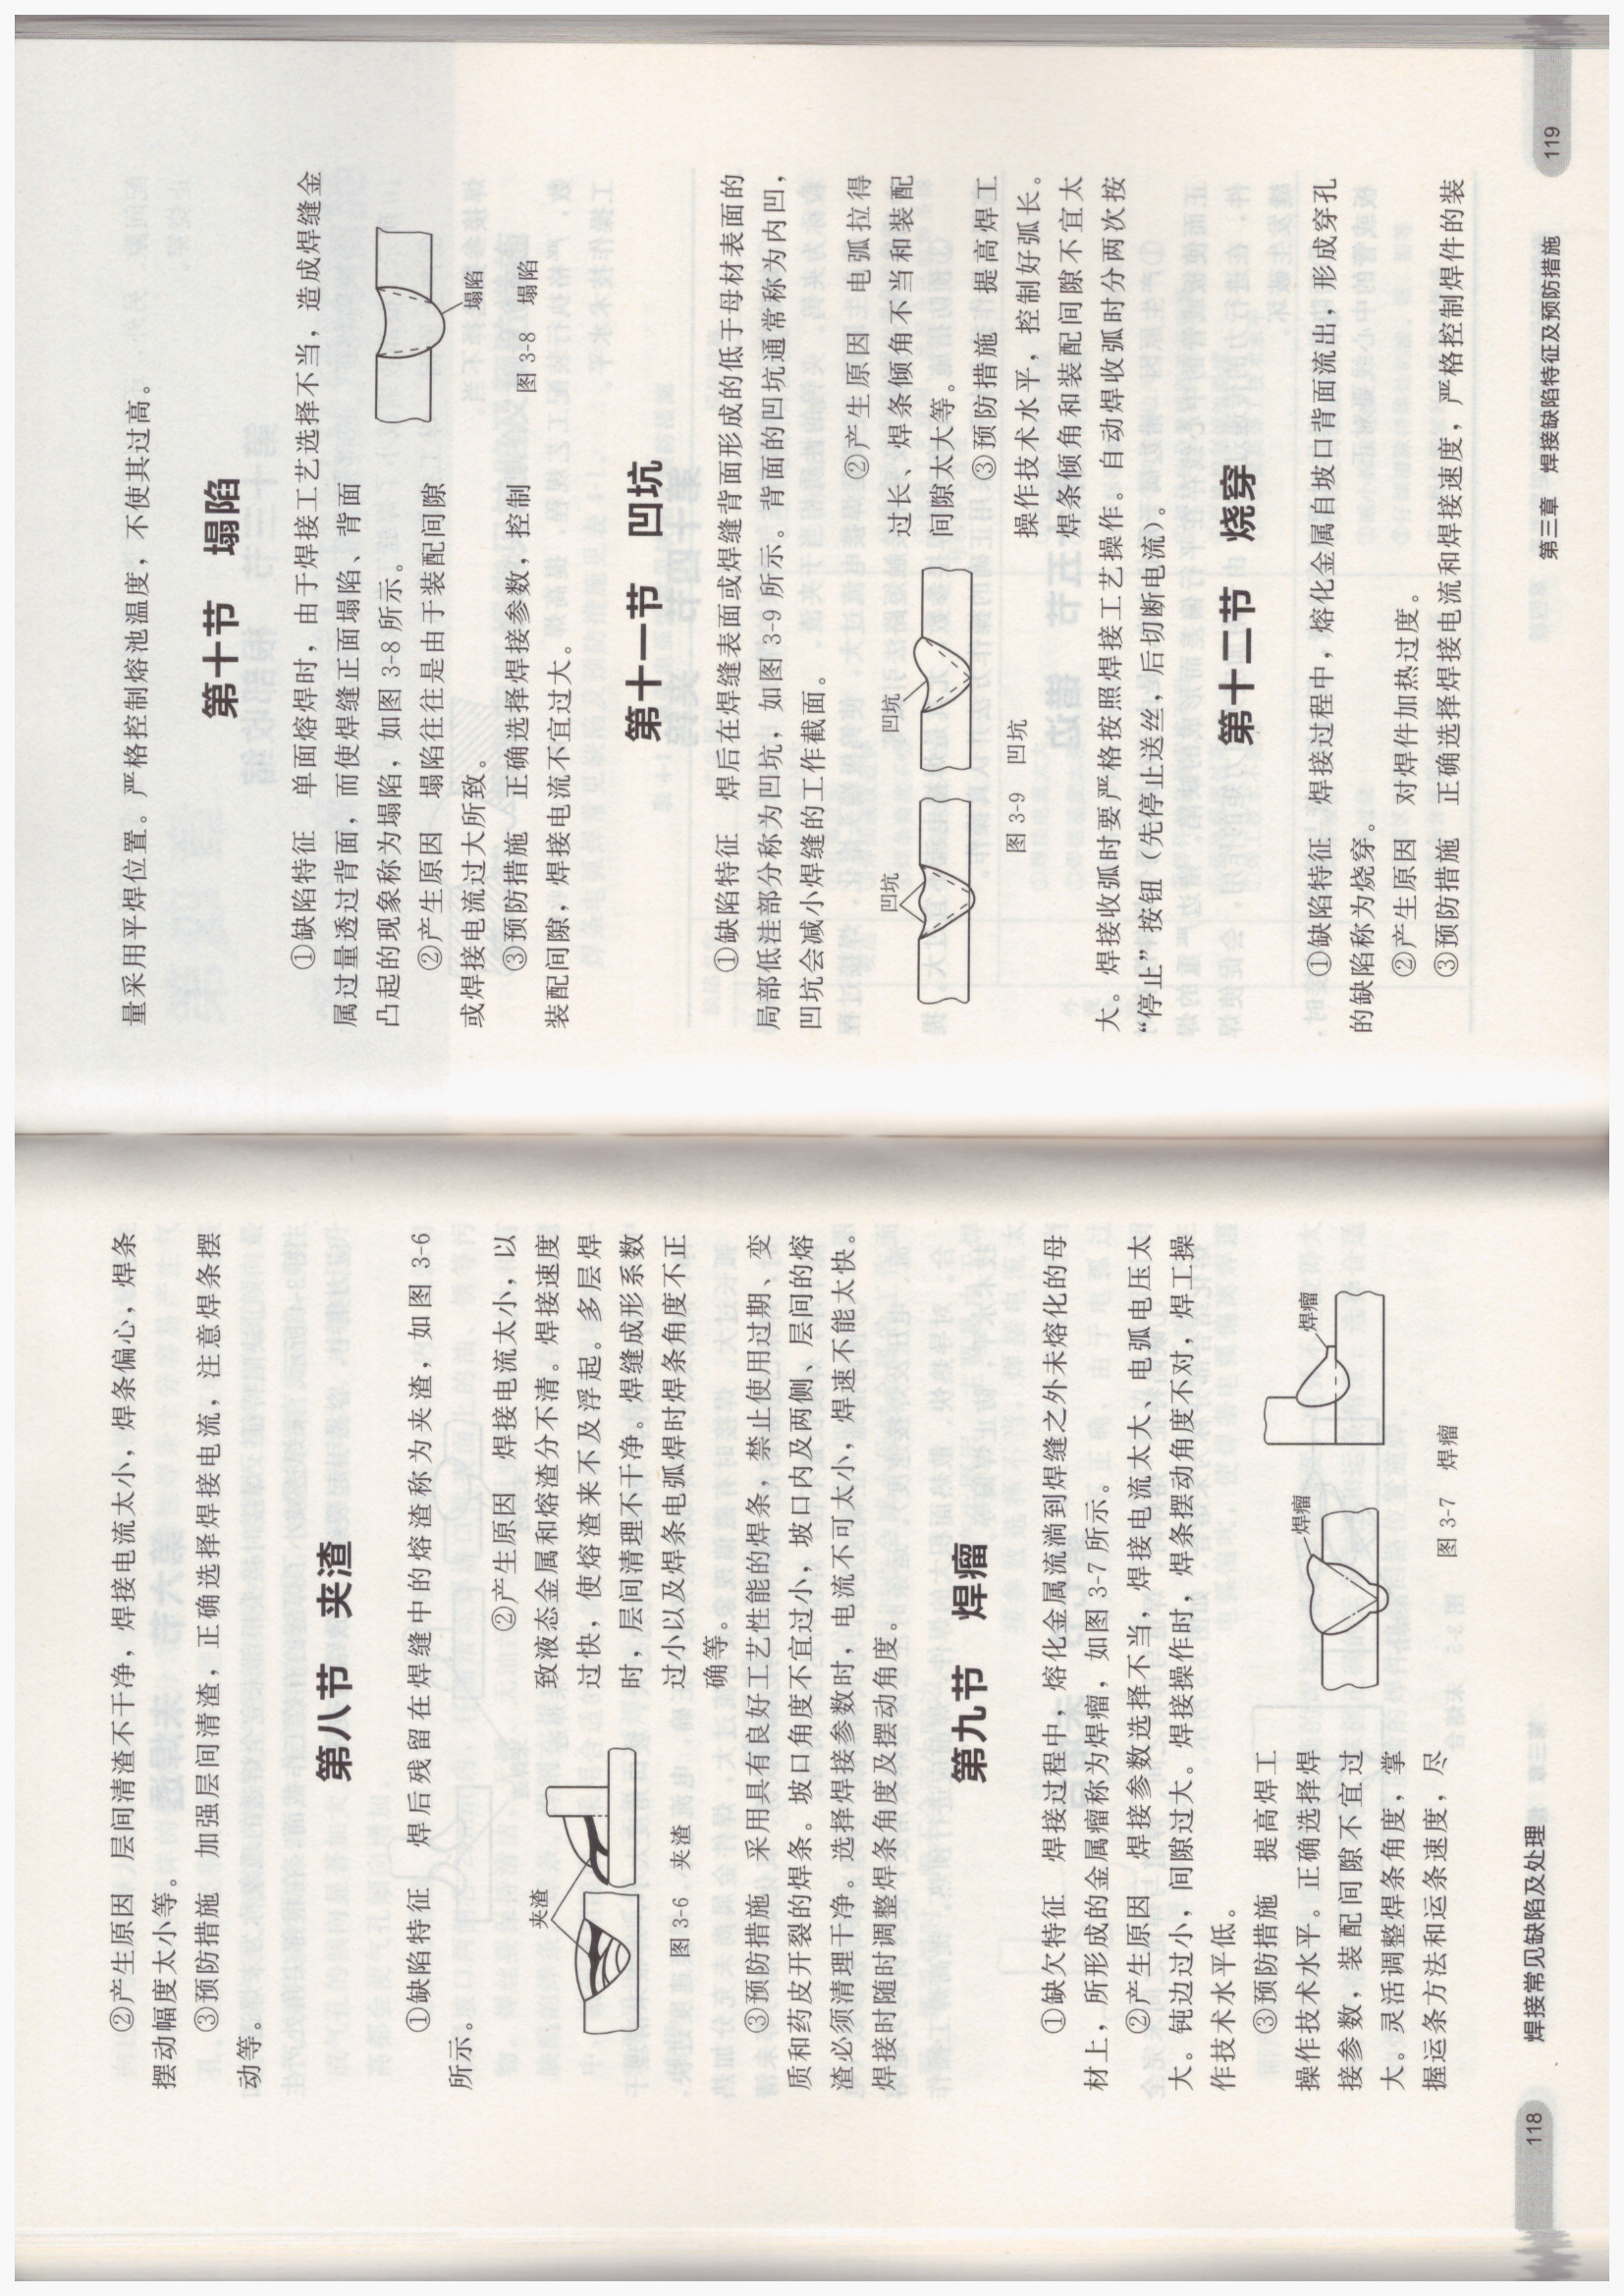 ②产生原因 层间清渣不干净，焊接电流太小，焊条偏心，焊条
摆动幅度太小等。
③预防措施 加强层间清渣，正确选择焊接电流，注意焊条摆
动等。
第八节 夹渣
①缺陷特征 焊后残留在焊缝中的熔渣称为夹渣，如图 3-6
所示。
②产生原因 焊接电流太小，以
致液态金属和熔渣分不清。焊接速度
过快，使熔渣来不及浮起。多层焊
时，层间清理不干净。焊缝成形系数
过小以及焊条电弧焊时焊条角度不正
确等。
夹渣
图 3-6 夹渣
③预防措施 采用具有良好工艺性能的焊条，禁止使用过期、变
质和药皮开裂的焊条。坡口角度不宜过小，坡口内及两侧、层间的熔
渣必须清理干净。选择焊接参数时，电流不可太小，焊速不能太快。
焊接时随时调整焊条角度及摆动角度。
第九节 焊瘤
①缺欠特征 焊接过程中，熔化金属流淌到焊缝之外未熔化的母
材上，所形成的金属瘤称为焊瘤，如图 3-7 所示。
②产生原因 焊接参数选择不当，焊接电流太大、电弧电压太
大。钝边过小，间隙过大。焊接操作时，焊条摆动角度不对，焊工操
作技术水平低。
③预防措施 提高焊工
操作技术水平。正确选择焊
接参数，装配间隙不宜过
大。灵活调整焊条角度，掌
握运条方法和运条速度，尽
焊瘤
焊瘤
图 3-7 焊瘤
118 焊接常见缺陷及处理
量采用平焊位置。严格控制熔池温度，不使其过高。
第十节 塌陷
①缺陷特征 单面熔焊时，由于焊接工艺选择不当，造成焊缝金
属过量透过背面，而使焊缝正面塌陷、背面
凸起的现象称为塌陷，如图 3-8 所示。
②产生原因 塌陷往往是由于装配间隙
或焊接电流过大所致。
③预防措施 正确选择焊接参数，控制
装配间隙，焊接电流不宜过大。
塌陷
图 3-8 塌陷
第十一节 凹坑
①缺陷特征 焊后在焊缝表面或焊缝背面形成的低于母材表面的
局部低洼部分称为凹坑，如图 3-9 所示。背面的凹坑通常称为内凹，
凹坑会减小焊缝的工作截面。
凹坑
凹坑
图 3-9 凹坑
②产生原因 电弧拉得
过长、焊条倾角不当和装配
间隙太大等。
③预防措施 提高焊工
操作技术水平，控制好弧长。
焊条倾角和装配间隙不宜太
大。焊接收弧时要严格按照焊接工艺操作。自动焊收弧时分两次按
“停止”按钮（先停止送丝，后切断电流）。
第十二节 烧穿
①缺陷特征 焊接过程中，熔化金属自坡口背面流出，形成穿孔
的缺陷称为烧穿。
②产生原因 对焊件加热过度。
③预防措施 正确选择焊接电流和焊接速度，严格控制焊件的装
第三章 焊接缺陷特征及预防措施 119